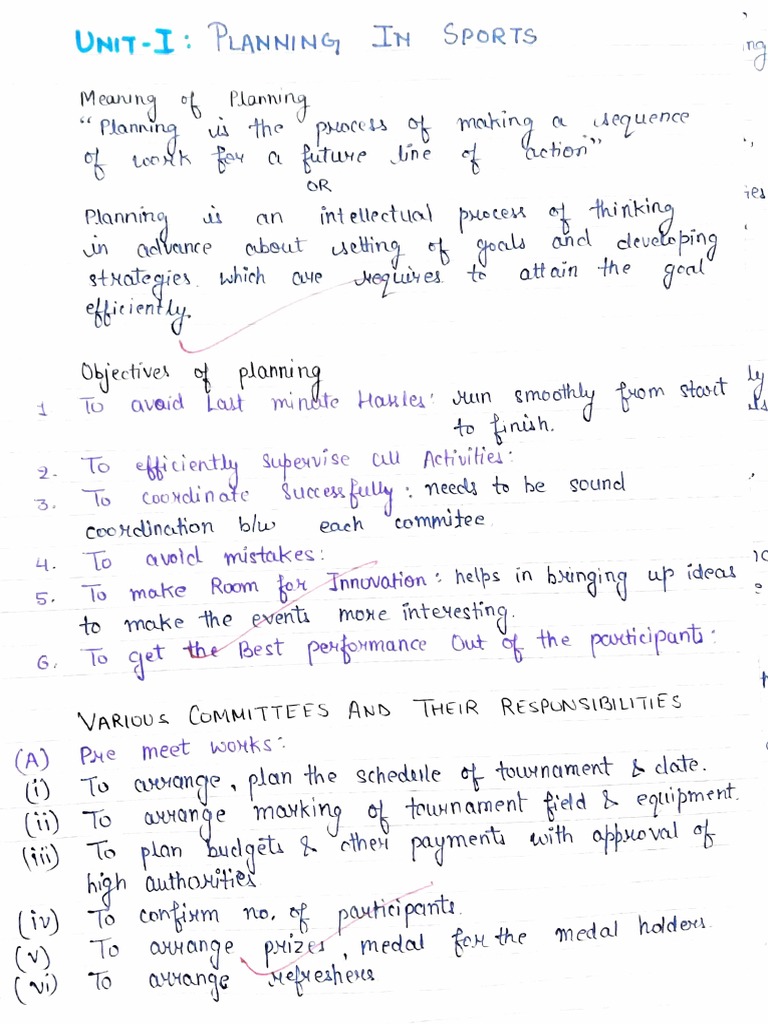 UNIT-I: PLANNING IN SPORTS
Meaning of Planning
"Planning is the process of making a sequence
of work for a future line of action"
OR
Planning is an intellectual process of thinking
in advance about setting of goals and developing
strategies which are requires to attain the goal
efficiently.
Objectives of planning
1 To avoid Last minute Hasles: run smoothly from start
to finish.
2. To efficiently supervise all Activities:
3. To coordinate Successfully: needs to be sound
coordination b/w each commitee
4. To avoid mistakes:
5. To make Room for Innovation: helps in bringing up ideas
to make the events more interesting.
6. To get the Best performance Out of the participants:
VARIOUS COMMITTEES AND THEIR RESPONSIBILITIES
(A) Pre meet works:
(i) To arrange, plan the schedule of tournament & date.
(ii) To arrange marking of tournament field & equipment.
(iii) To plan budgets & other payments with approval of
high authorities
(iv) To confirm no. of participants.
(v) To arrange prizes, medal for the medal holders.
(vi) To arrange refreshers